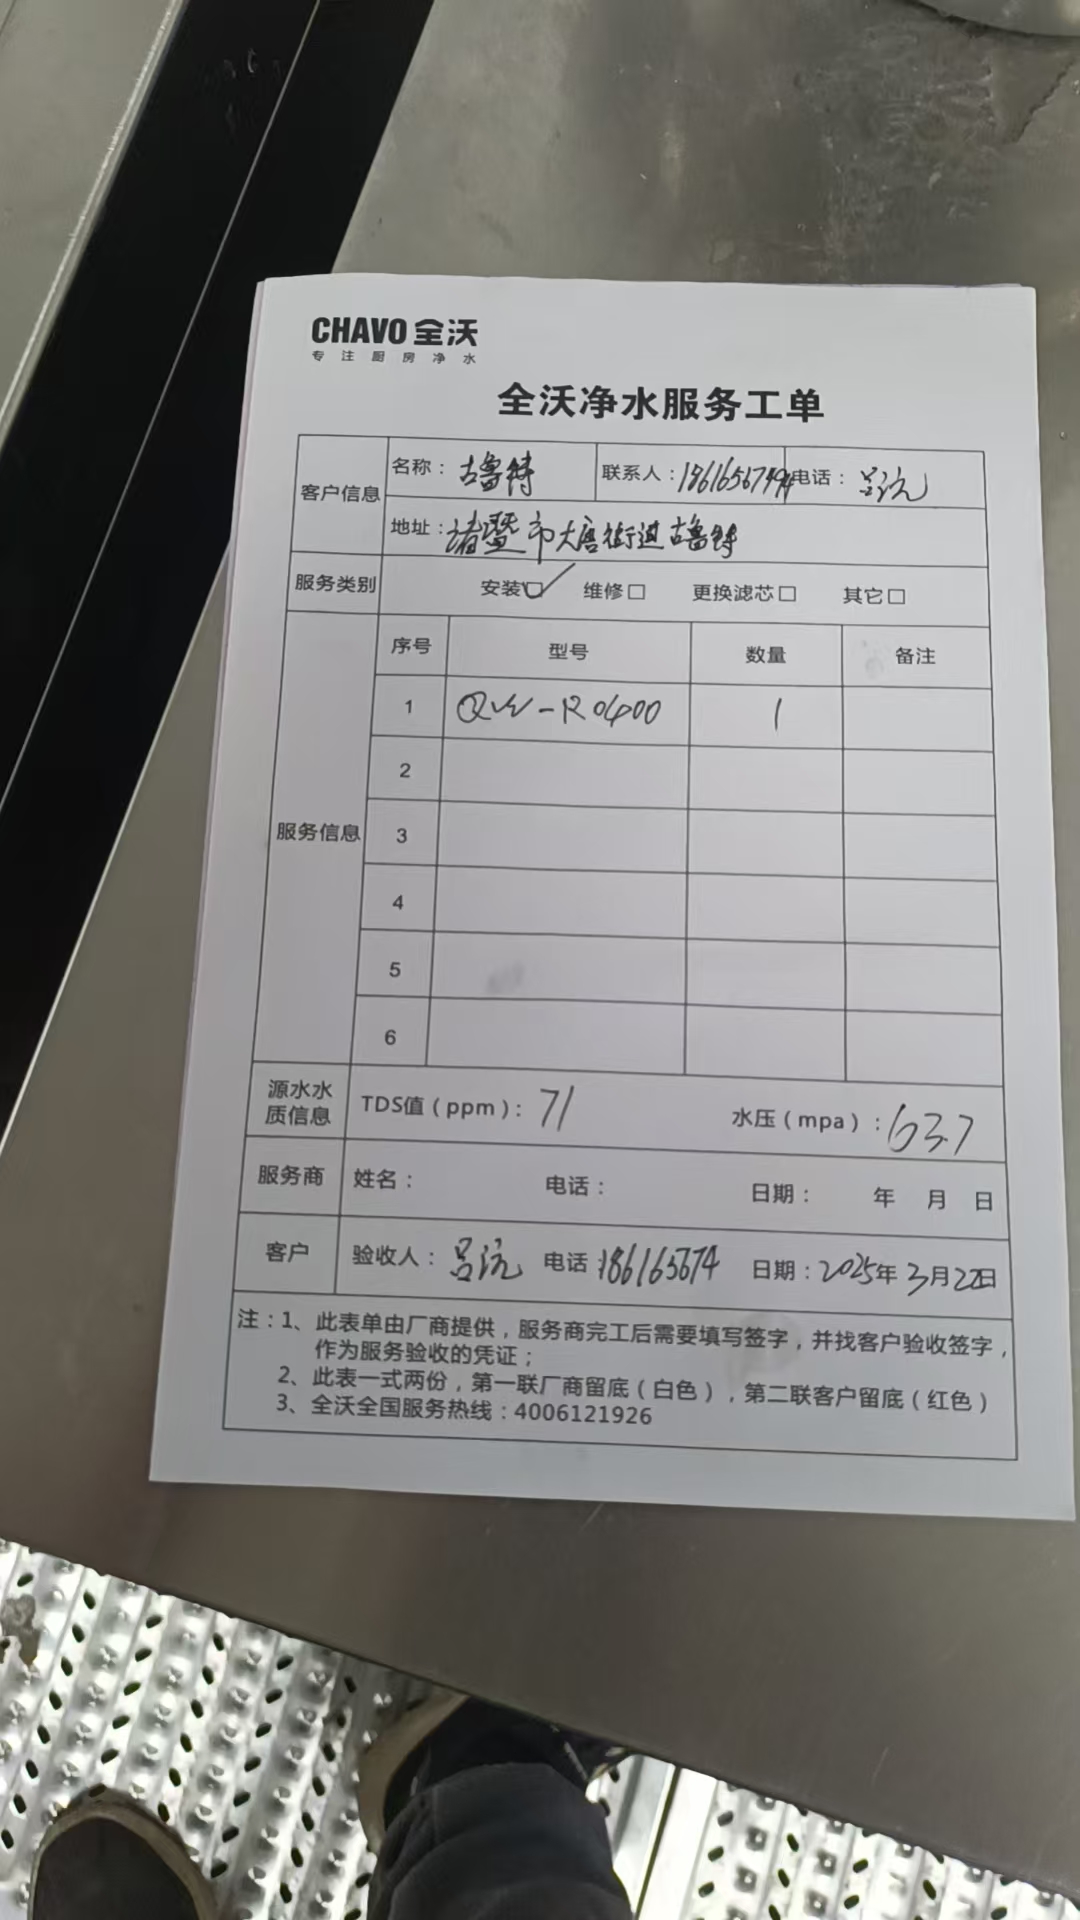 CHAVO 全沃
专注厨房净水
全沃净水服务工单
客户信息 名称：古鲁特 联系人： 电话：吕沆
地址：诸暨市大唐街道古鲁特
服务类别 安装☑ 维修□ 更换滤芯□ 其它□
服务信息 序号 型号 数量 备注
1 QW-RO400 1
2
3
4
5
6
源水水质信息 TDS值（ppm）：71 水压（mpa）：63.7
服务商 姓名： 电话： 日期： 年 月 日
客户 验收人：吕沆 电话：186165674 日期：2025年3月22日
注：1、此表单由厂商提供，服务商完工后需要填写签字，并找客户验收签字，
作为服务验收的凭证；
2、此表一式两份，第一联厂商留底（白色），第二联客户留底（红色）
3、全沃全国服务热线：4006121926